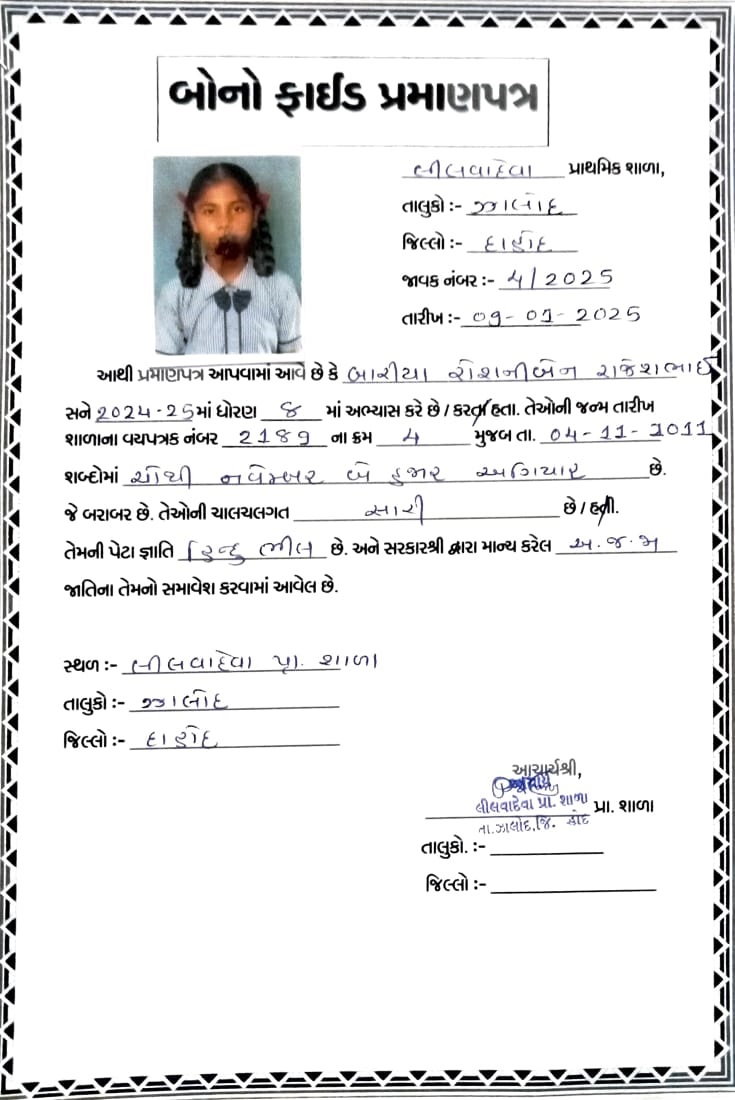 બોનો ફાઈડ પ્રમાણપત્ર
લીલવાદેવા પ્રાથમિક શાળા,
તાલુકો :- ઝાલોદ
જિલ્લો :- દાહોદ
જાવક નંબર :- ૫/2025
તારીખ :- 09-01-2025
આથી પ્રમાણપત્ર આપવામાં આવે છે કે બારીયા રોશનીબેન રાકેશભાઈ
સને 2024-25 માં ધોરણ ૮ માં અભ્યાસ કરે છે / કરતા હતા. તેઓની જન્મ તારીખ
શાળાના વયપત્રક નંબર 2189 ના ક્રમ 4 મુજબ તા. 04-11-2011
શબ્દોમાં ચોથી નવેમ્બર બે હજાર અગિયાર છે.
જે બરાબર છે. તેઓની ચાલચલગત સારી છે / હતી.
તેમની પેટા જ્ઞાતિ હિન્દુ ભીલ છે. અને સરકારશ્રી દ્વારા માન્ય કરેલ અ.જ.જા
જાતિના તેમનો સમાવેશ કરવામાં આવેલ છે.
સ્થળ :- લીલવાદેવા પ્રા. શાળા
તાલુકો :- ઝાલોદ
જિલ્લો :- દાહોદ
આચાર્યશ્રી,
આચાર્ય
લીલવાદેવા પ્રા. શાળા પ્રા. શાળા
તા. ઝાલોદ, જિ. દાહોદ
તાલુકો. :-
જિલ્લો :-